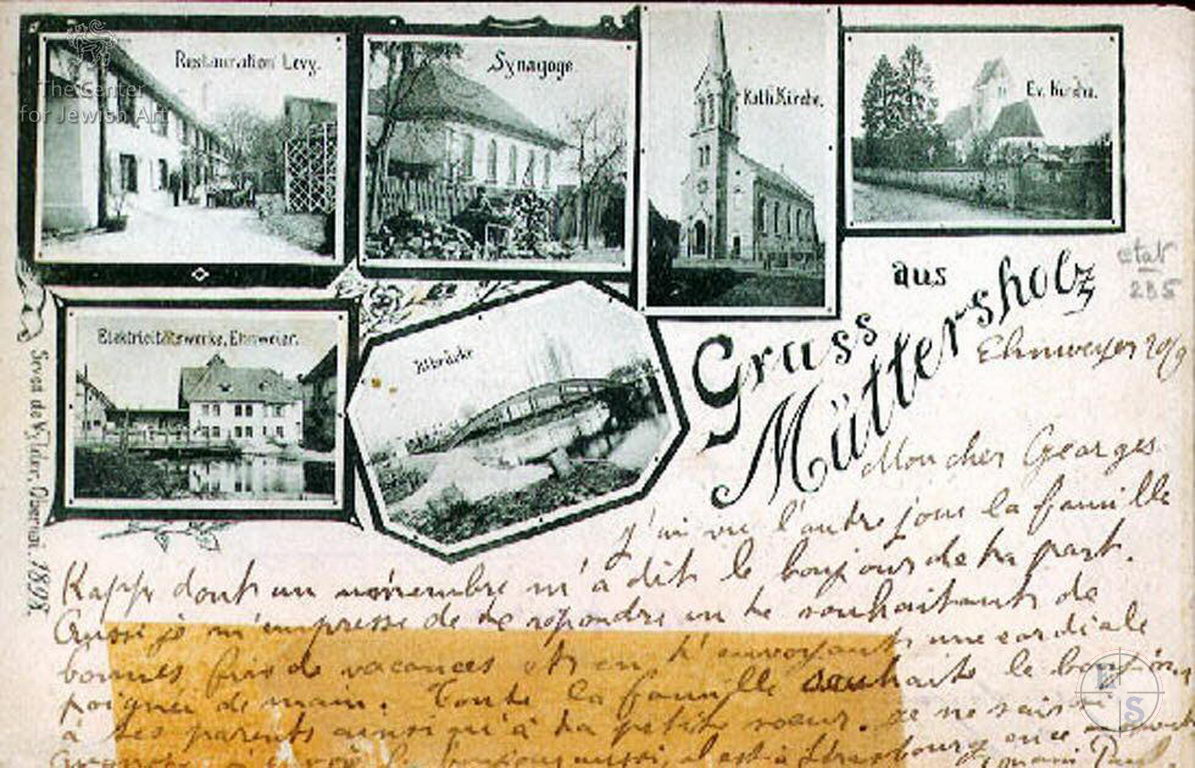 The Center
for Jewish Art
Restauration Levy.
Synagoge.
Kath. Kirche.
Ev. Kirche.
Elektricitätswerke, Ehnweier.
Illbrücke
Gruss aus
Müttersholz
etat
285
Ehnweyer 20/9
Mon cher Georges
j'ai vu l'autre jour la famille
Kapp dont un membre m'a dit le bonjour de ta part.
Aussi je m'empresse de te répondre en te souhaitant de
bonnes fins de vacances et en t'envoyant une cordiale
poignée de main. Toute la famille souhaite le bonjour
à tes parents ainsi qu'à ta petite soeur. Je ne sais si
le bonjour aussi, il est à Strasbourg
Obernai. 1898.